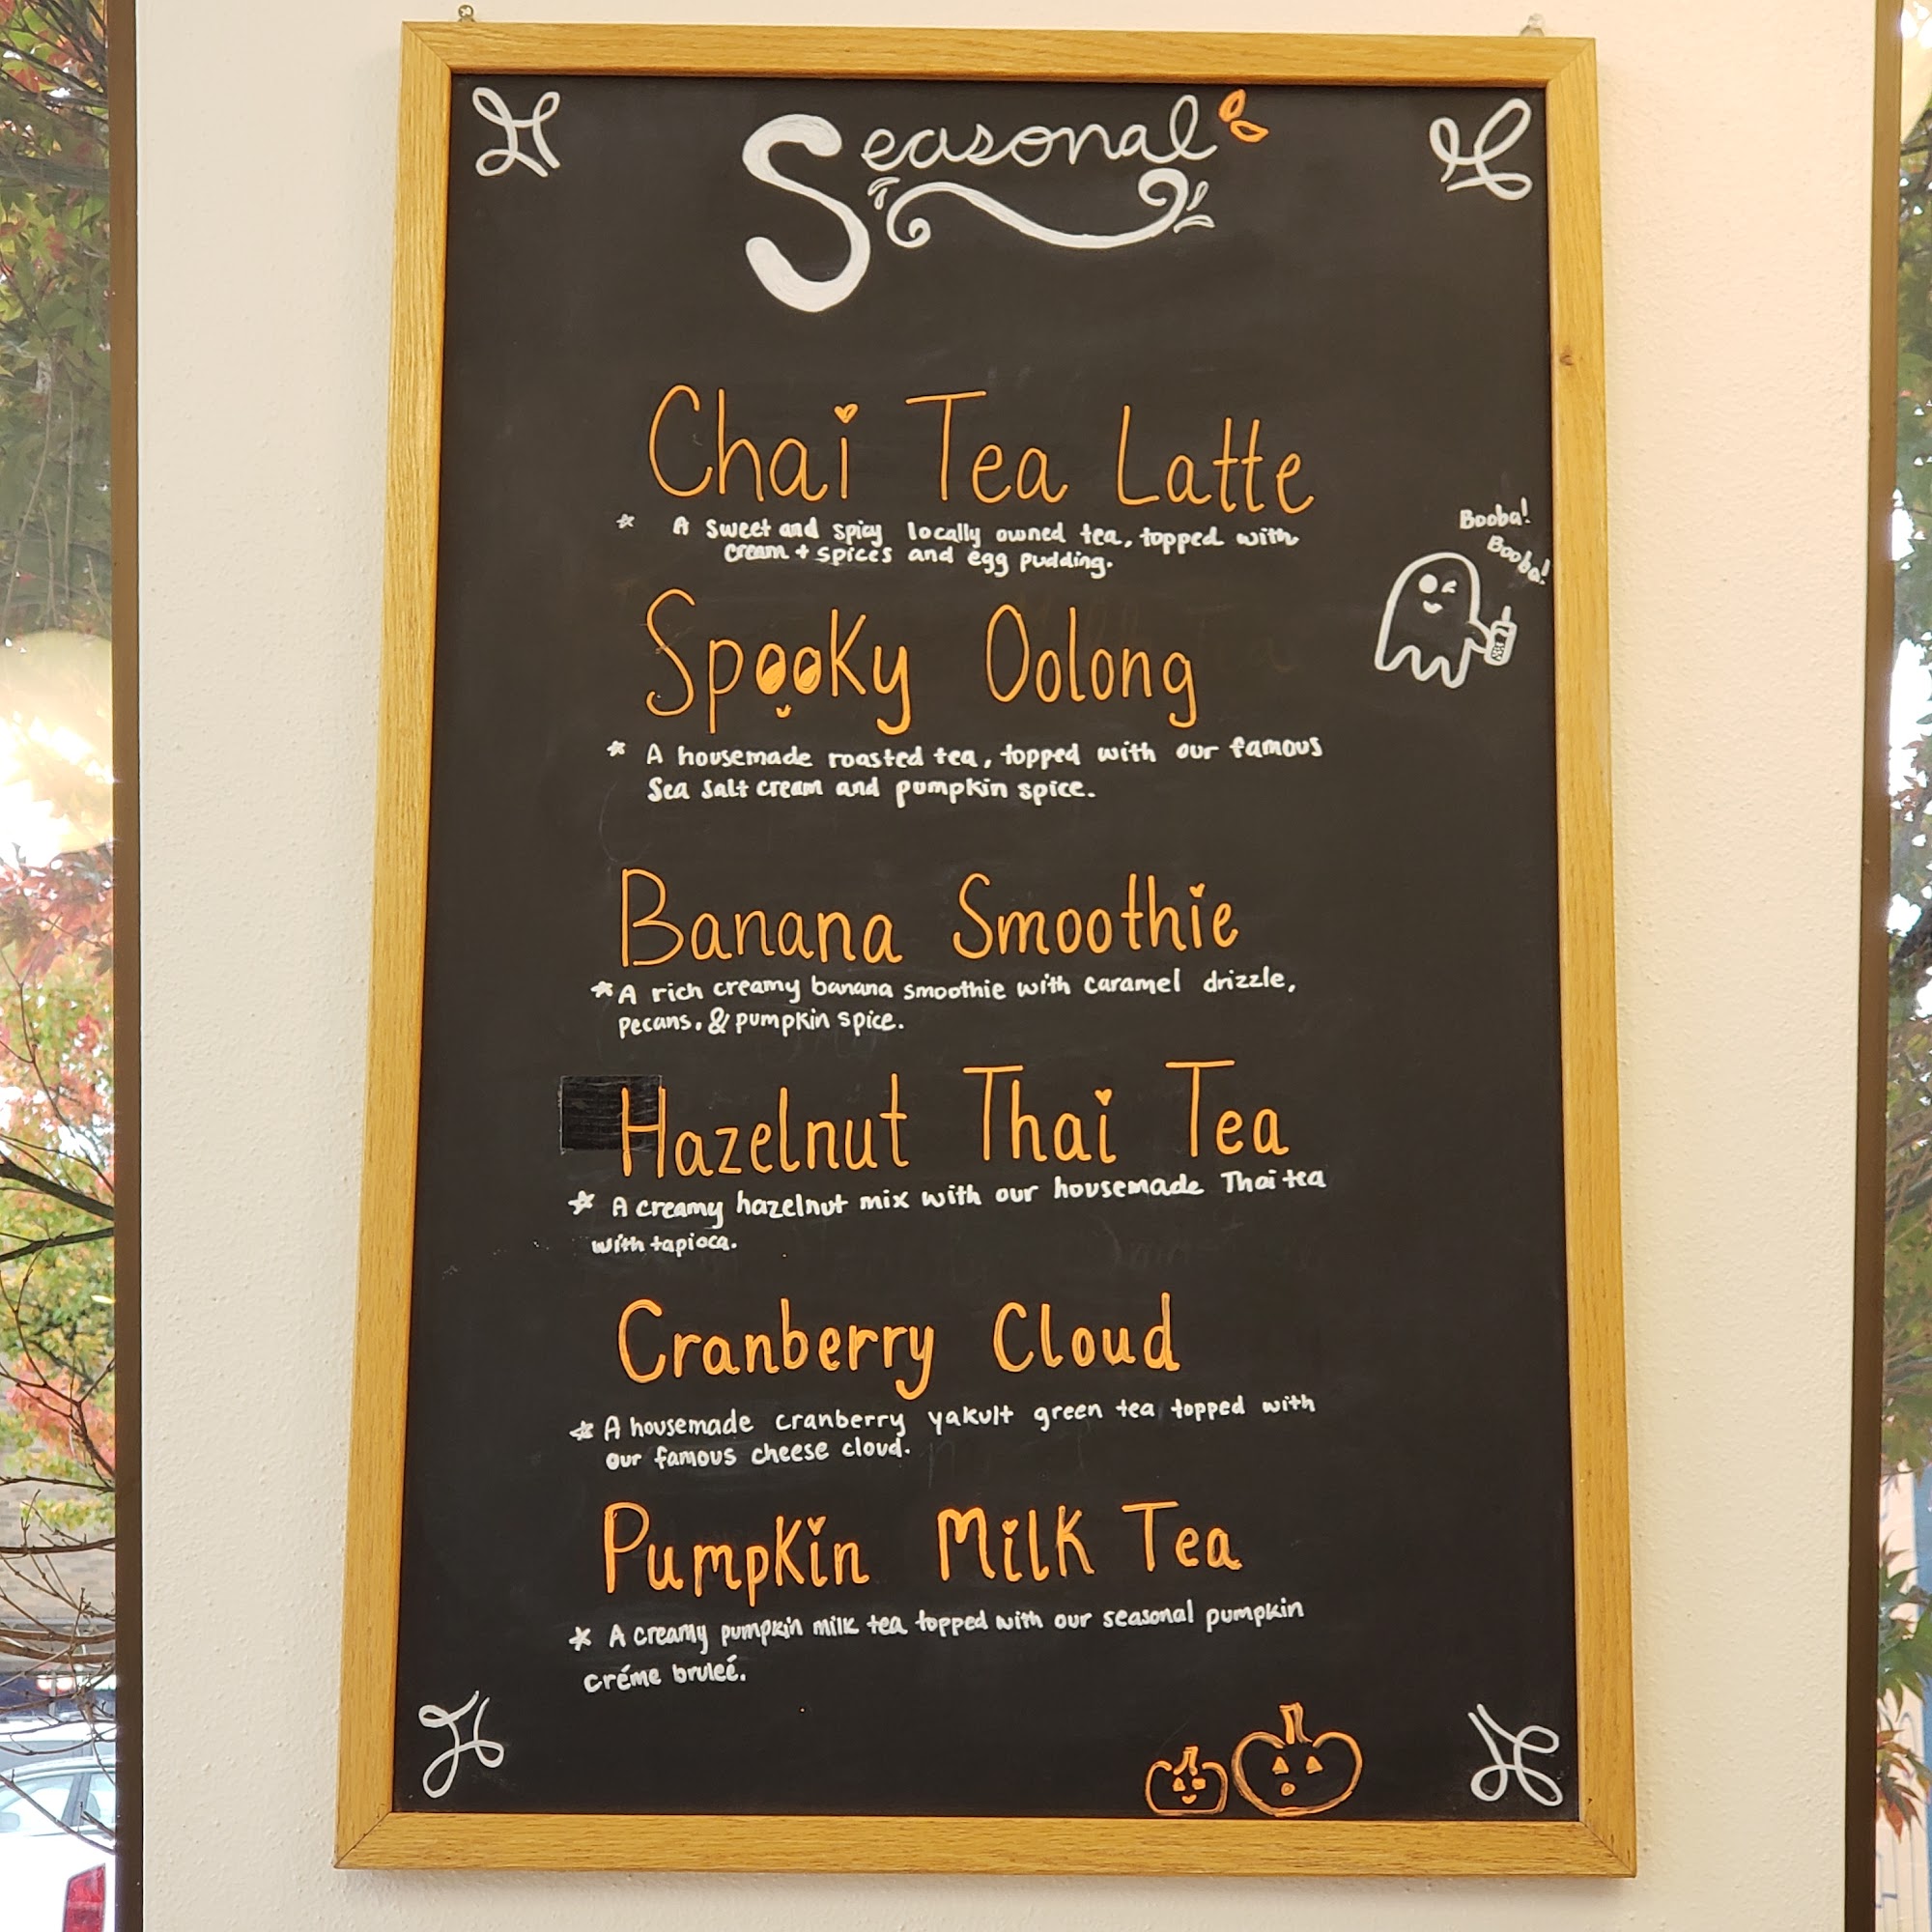 Seasonal
Chai Tea Latte
* A sweet and spicy locally owned tea, topped with
cream + spices and egg pudding.
Booba!
Booba!
Spooky Oolong
* A housemade roasted tea, topped with our famous
Sea Salt cream and pumpkin spice.
Banana Smoothie
* A rich creamy banana smoothie with caramel drizzle,
pecans, & pumpkin spice.
Hazelnut Thai Tea
* A creamy hazelnut mix with our housemade Thai tea
with tapioca.
Cranberry Cloud
* A housemade cranberry yakult green tea topped with
our famous cheese cloud.
Pumpkin Milk Tea
* A creamy pumpkin milk tea topped with our seasonal pumpkin
créme bruleé.